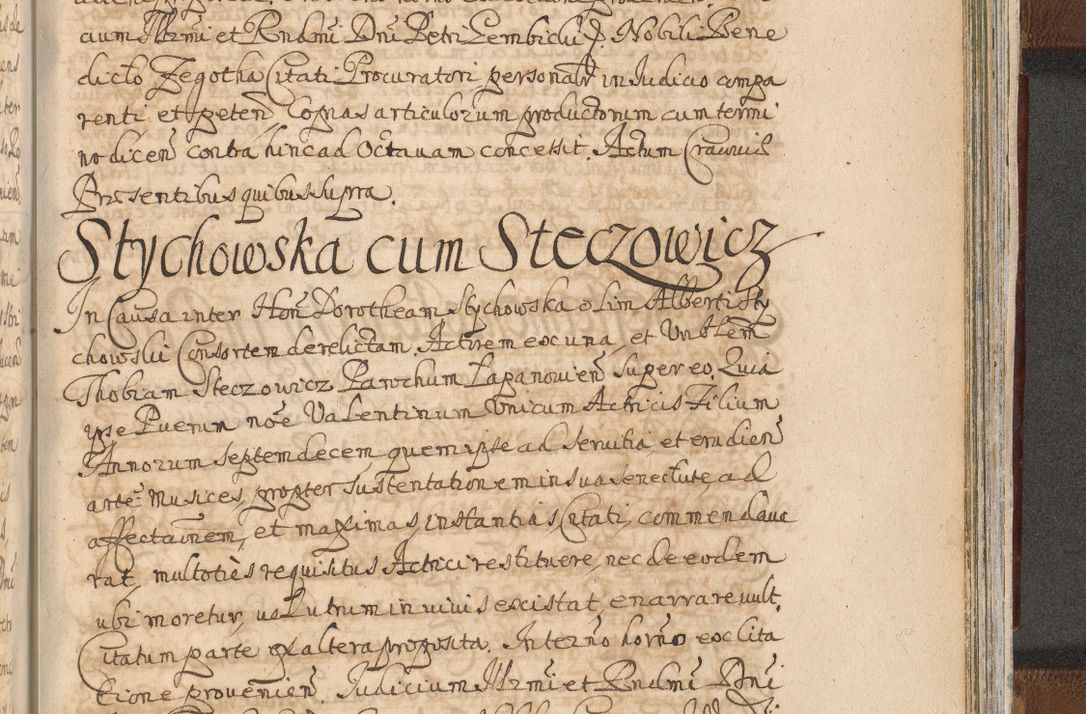 cium Illrmi et Rndmi Dni Petri Gembicki P. Nobili Bene
dicto Zegotha Citati Procuratori personalr in Iudicio compa
renti et peten Copias articulorum productorum cum termi
no dicen contra hinc ad Octavam concessit. Actum Cracoviæ
Præsentibus quibus supra.
Stychowska cum Steczowicz
In Causa inter Hon Dorotheam Stychowska olim Alberti Sty
chowski Consortem derelictam. Actricem ex una, et Vnblem
Thobiam Steczowicz Parochum Lapanovien super eo, Quia
ipse Puerum noe Valentinum Vnicum Actricis Filium
Annorum septemdecem, quem ipse ad servitia, et erudien
arte Musices, propter sustentationem in sua senectute, ad
affectaoinem, et maximas, instantias, Citati, commendave
rat, multoties requisitus Actrici restituere, nec de eodem
ubi moretur, vel utrum in vivis existat, enarrare vult.
Citatum parte ex altera proposita. In termno horno ex Cita
tione provenien. Iudicium Illrmi et Rndmi Dni